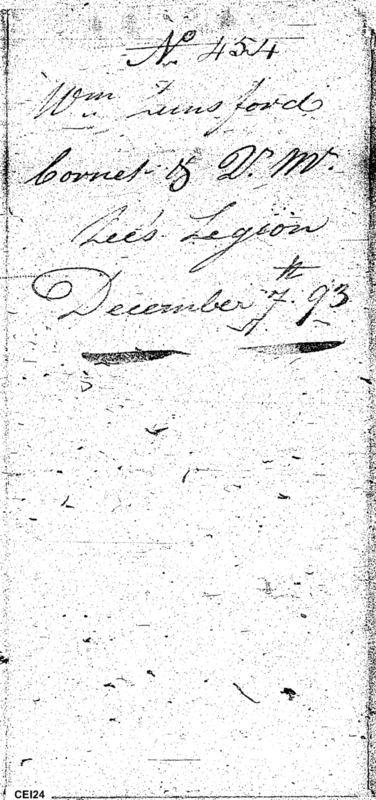 No 454
Wm Lunsford
Cornet & D. Mr.
Lee's Legion
December 7th 93
CEI24